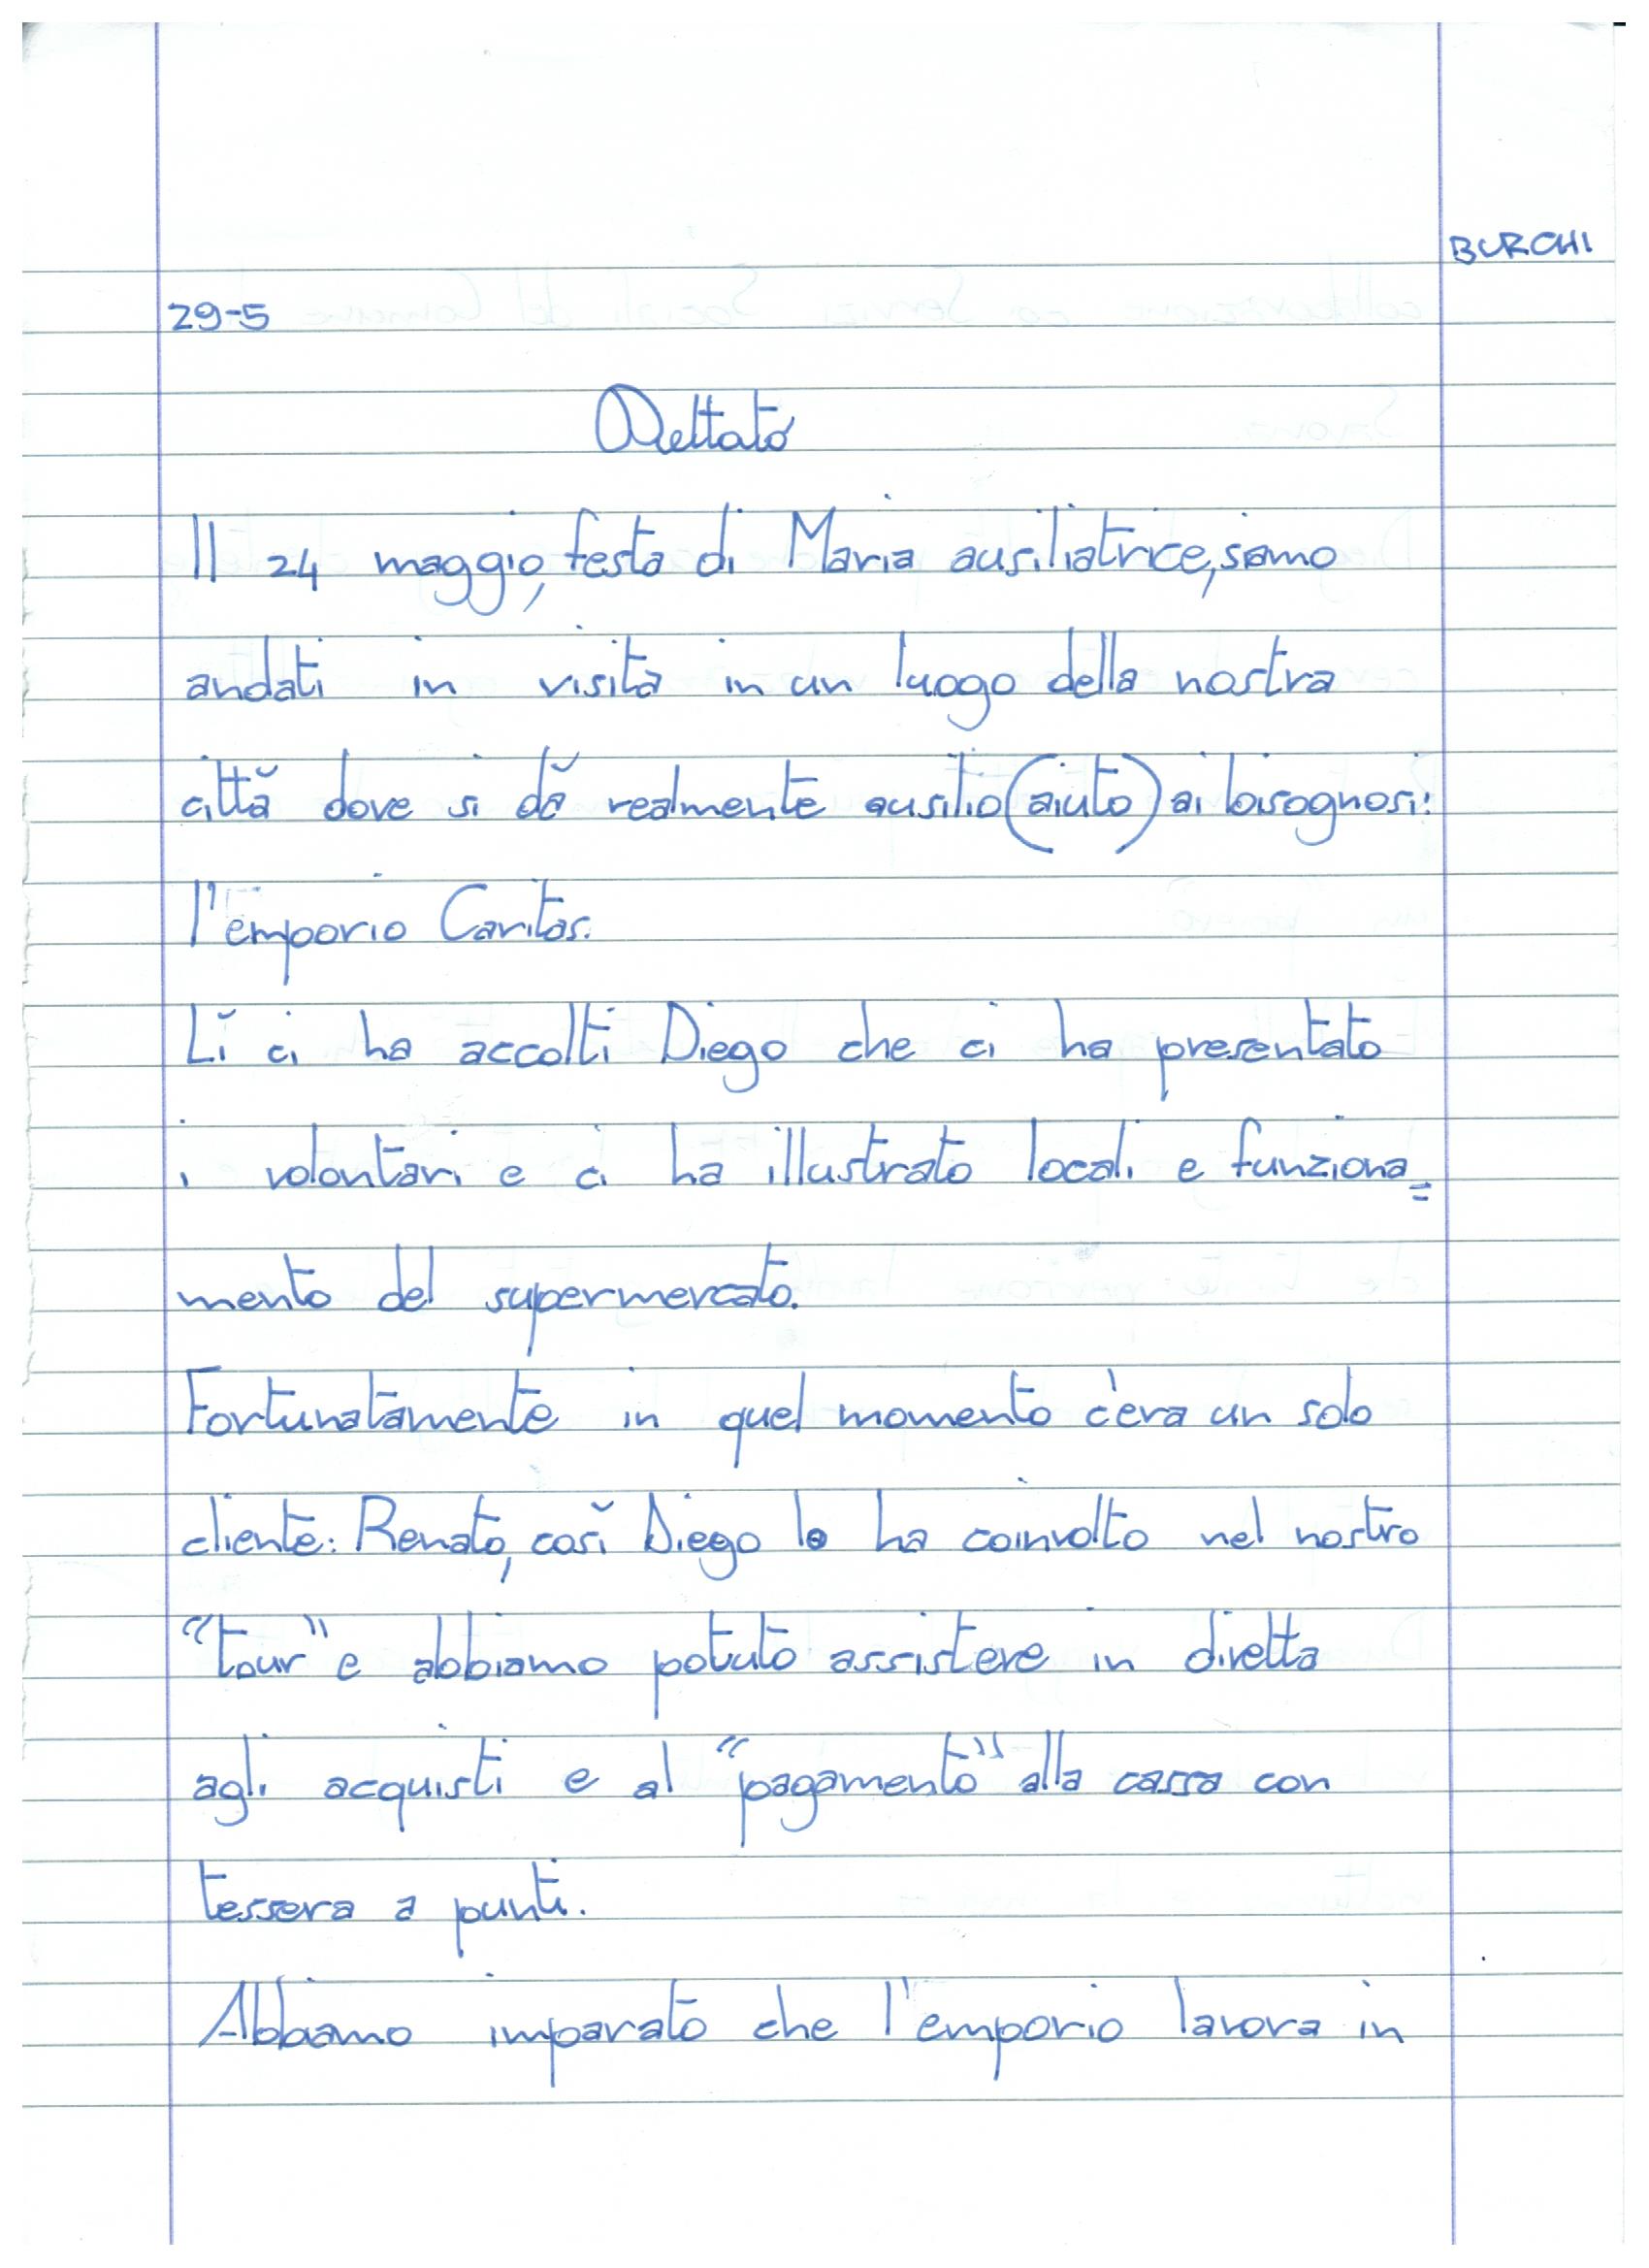 BURCHI
29-5
Dettato
Il 24 maggio, festa di Maria ausiliatrice, siamo
andati in visita in un luogo della nostra
città dove si dà realmente ausilio (aiuto) ai bisognosi:
l'emporio Caritas.
Lì ci ha accolti Diego che ci ha presentato
i volontari e ci ha illustrato locali e funziona=
mento del supermercato.
Fortunatamente in quel momento c'era un solo
cliente: Renato, così Diego lo ha coinvolto nel nostro
"tour" e abbiamo potuto assistere in diretta
agli acquisti e al "pagamento" alla cassa con
tessera a punti.
Abbiamo imparato che l'emporio lavora in